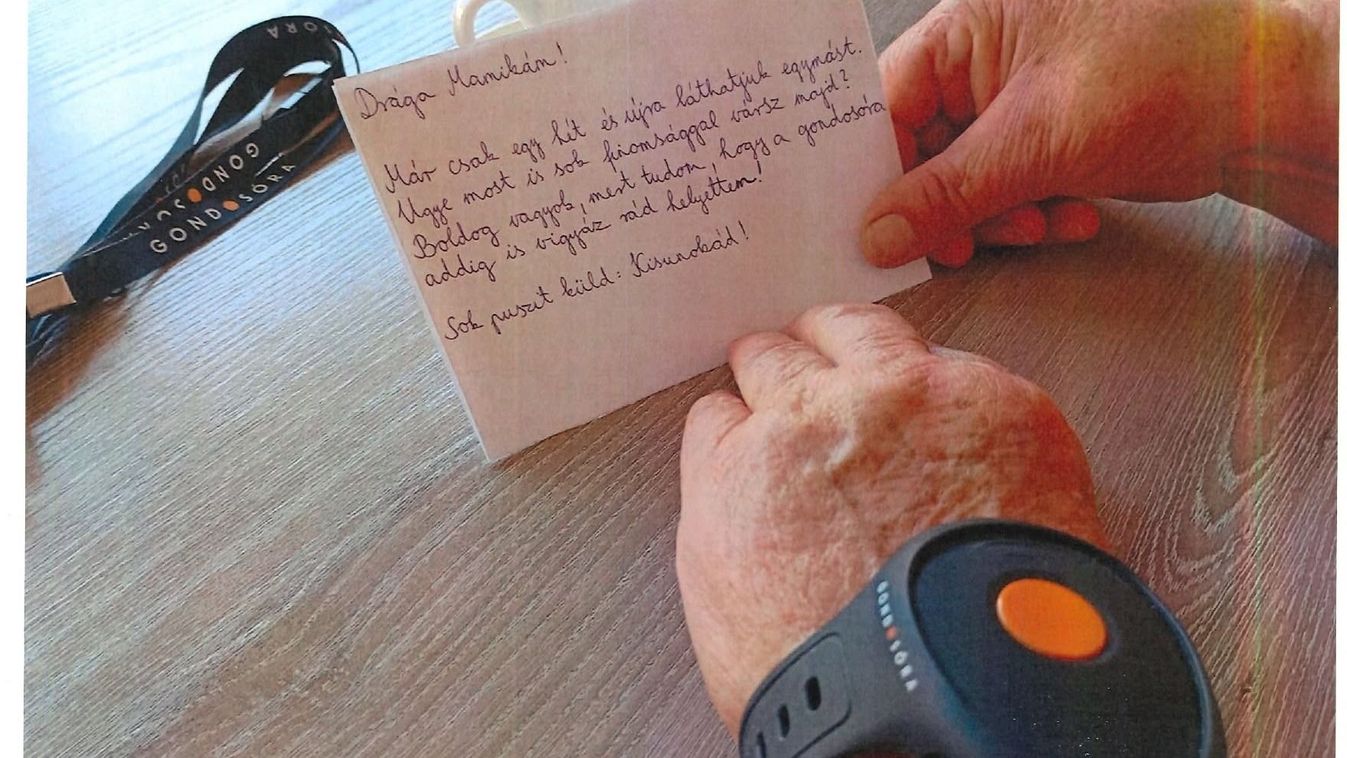 SÓRA
GONDOSÓRA
GONDOSÓRA
Drága Mamikám!
Már csak egy hét és újra láthatjuk egymást.
Ugye most is sok finomsággal vársz majd?
Boldog vagyok, mert tudom, hogy a gondosóra
addig is vigyáz rád helyettem!
Sok puszit küld: Kisunokád!
GONDOSÓRA